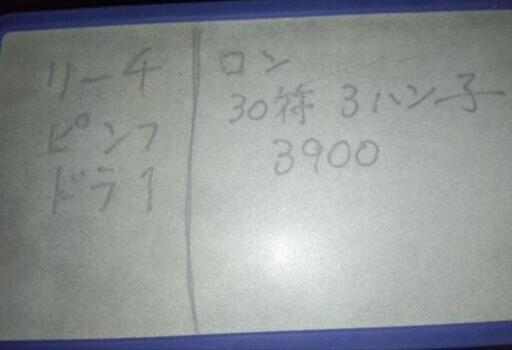 リーチ
ピンフ
ドラ1
ロン
30符 3ハン子
3900